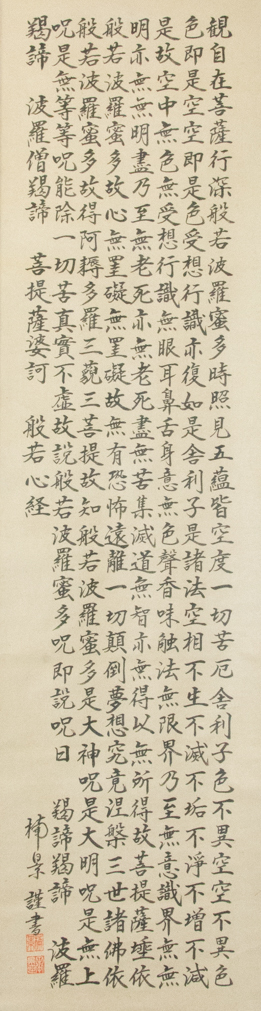 観自在菩薩行深般若波羅蜜多時照見五蘊皆空度一切苦厄舎利子色不異空空不異色
色即是空空即是色受想行識亦復如是舎利子是諸法空相不生不滅不垢不淨不増不減
是故空中無色無受想行識無眼耳鼻舌身意無色聲香味触法無眼界乃至無意識界無無
明亦無無明盡乃至無老死亦無老死盡無苦集滅道無智亦無得以無所得故菩提薩埵依
般若波羅蜜多故心無罣礙無罣礙故無有恐怖遠離一切顛倒夢想究竟涅槃三世諸佛依
般若波羅蜜多故得阿耨多羅三藐三菩提故知般若波羅蜜多是大神呪是大明呪是無上
呪是無等等呪能除一切苦真實不虚故説般若波羅蜜多呪即説呪曰 羯諦羯諦 波羅
羯諦 波羅僧羯諦 菩提薩婆訶 般若心経
楠景謹書